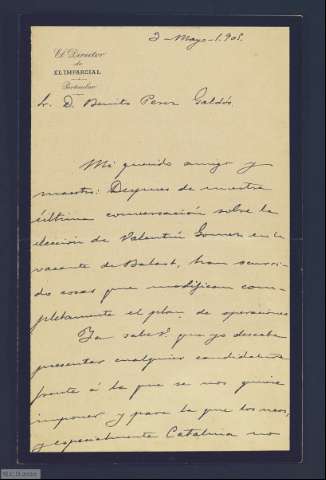 3 - Mayo - 1.901.
El Director
de
EL IMPARCIAL
Particular
Sr. D. Benito Perez Galdós
Mi querido amigo y
maestro: Despues de nuestra
última conversación sobre la
elección de Valentín Gomez en la
vacante de Balart, han ocurri-
do cosas que modifican com-
pletamente el plan de operaciones
Ya sabe V. que yo deseaba
presentar cualquier candidato
frente á la que se nos quiere
imponer y para la que los neos,
y especialmente Catalina no